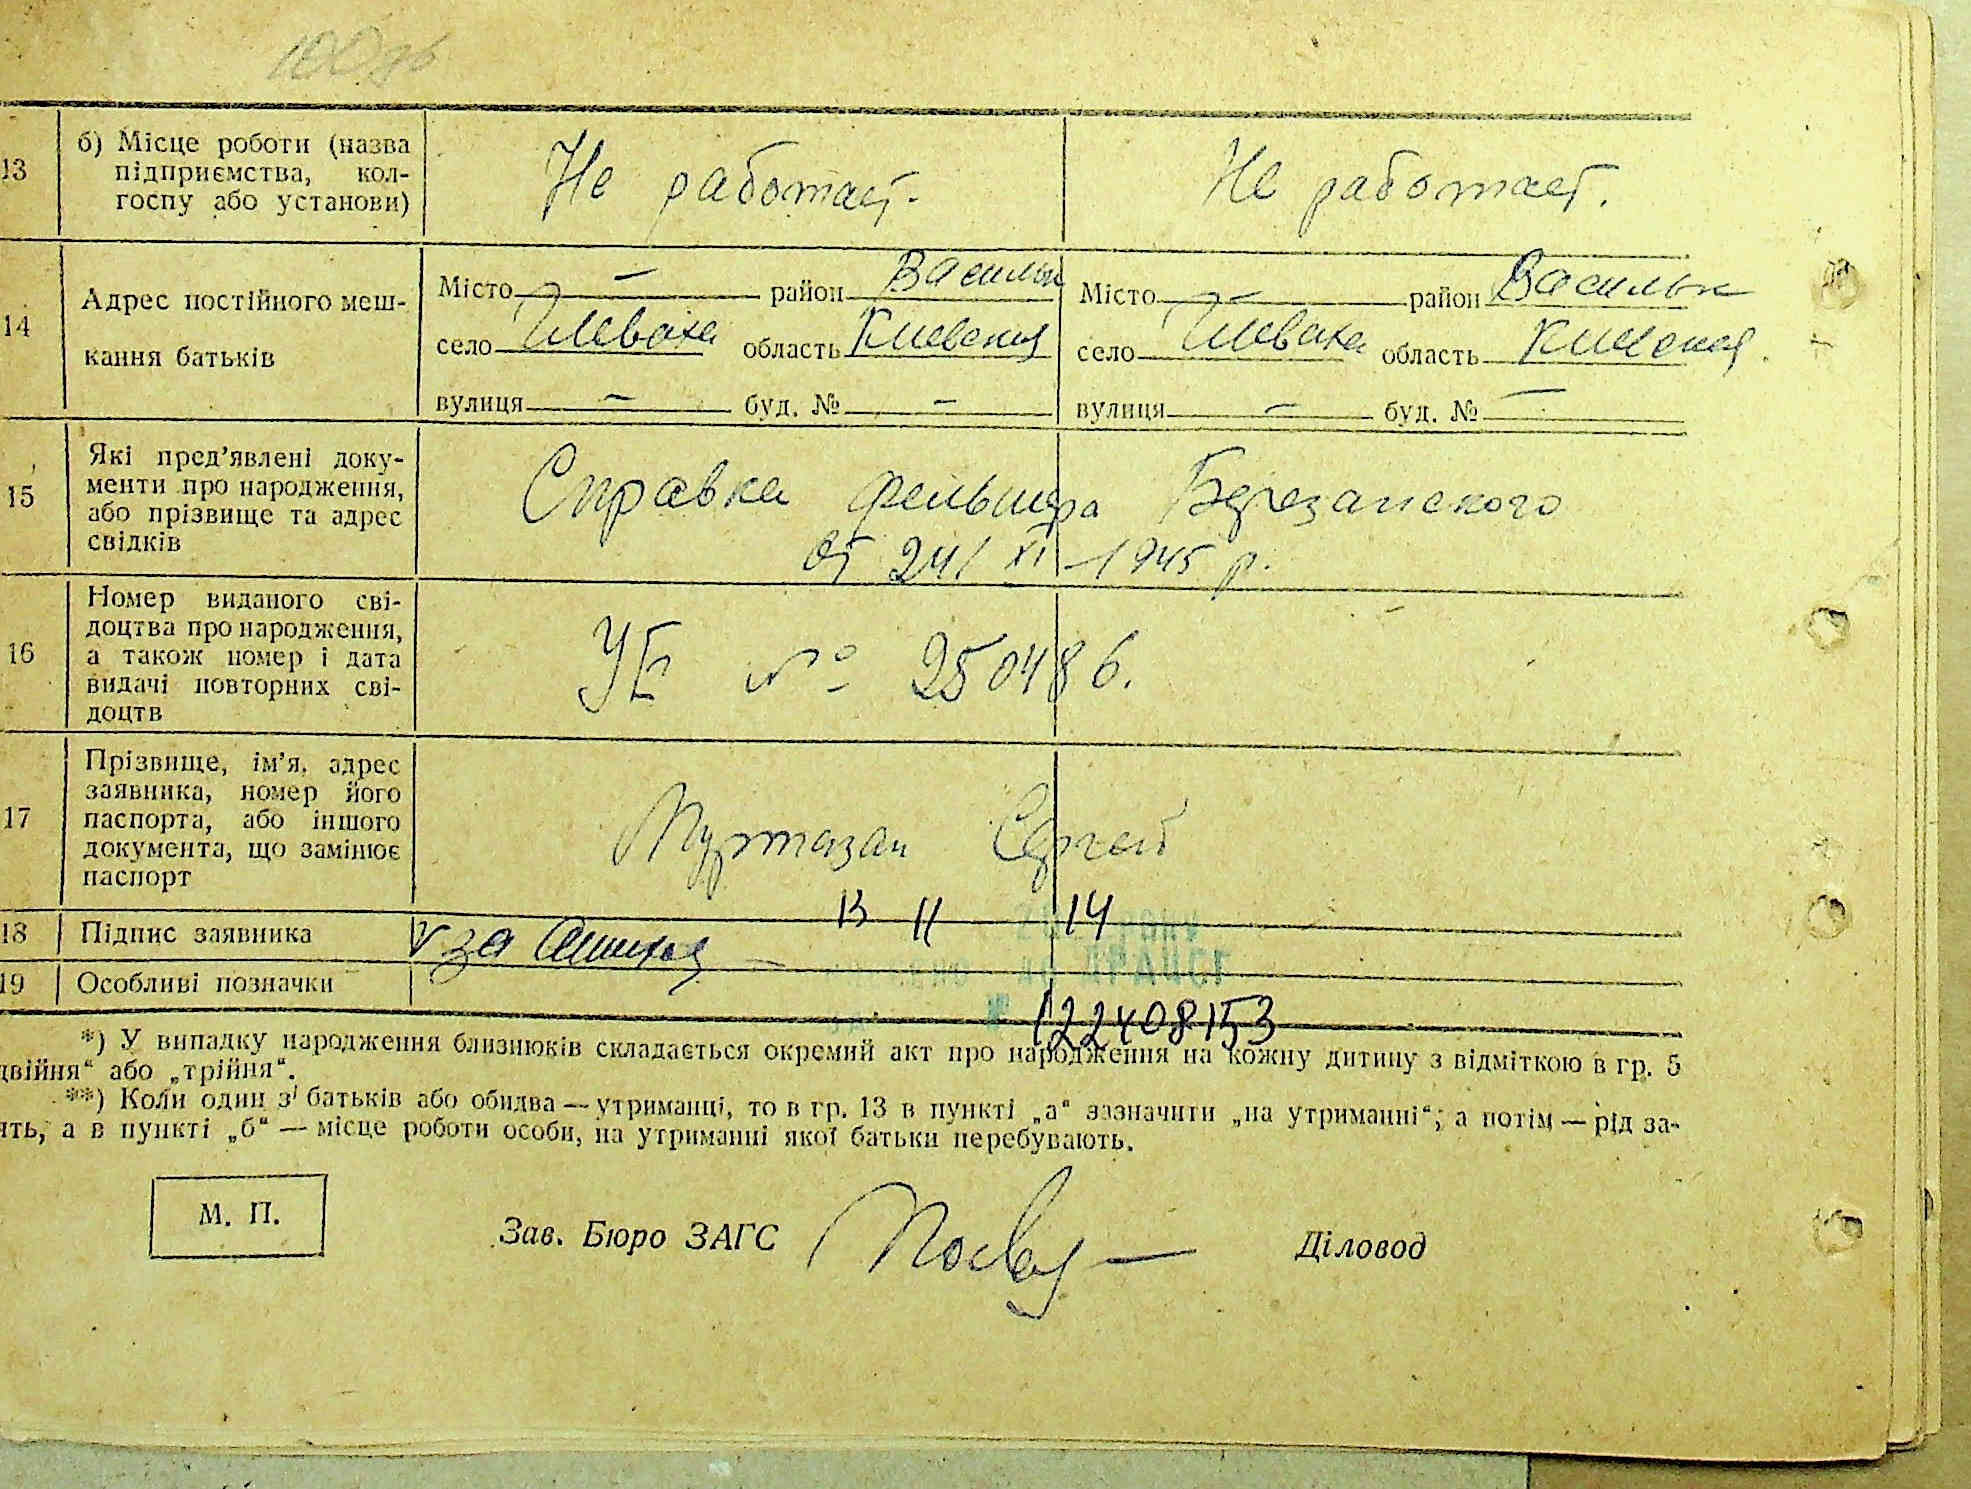 13
б) Місце роботи (назва
підприємства, кол-
госпу або установи)
Не работает.
Не работает.
14
Адрес постійного меш-
кання батьків
Місто — район Васильк
село Глеваха область Киевская
вулиця — буд. № —
Місто — район Васильк
село Глеваха область Киевская
вулиця — буд. № —
15
Які пред’явлені доку-
менти про народження,
або прізвище та адрес
свідків
Справка фельшера Березанского
от 24/ XI – 1945 р.
16
Номер виданого сві-
доцтва про народження,
а також номер і дата
видачі повторних сві-
доцтв
УБ № 250486.
17
Прізвище, ім’я, адрес
заявника, номер його
паспорта, або іншого
документа, що замінює
паспорт
Муртазан Сергей
13 11 14
18
Підпис заявника
за
19
Особливі позначки
ДРАЦСГ
№ 122408153
*) У випадку народження близнюків складається окремий акт про народження на кожну дитину з відміткою в гр. 5
двійня“ або „трійня“.
**) Коли один з батьків або обидва — утриманці, то в гр. 13 в пункті „а“ зазначити „на утриманні“; а потім — рід за-
ять, а в пункті „б“ — місце роботи особи, на утриманні якої батьки перебувають.
М. П.
Зав. Бюро ЗАГС
Діловод